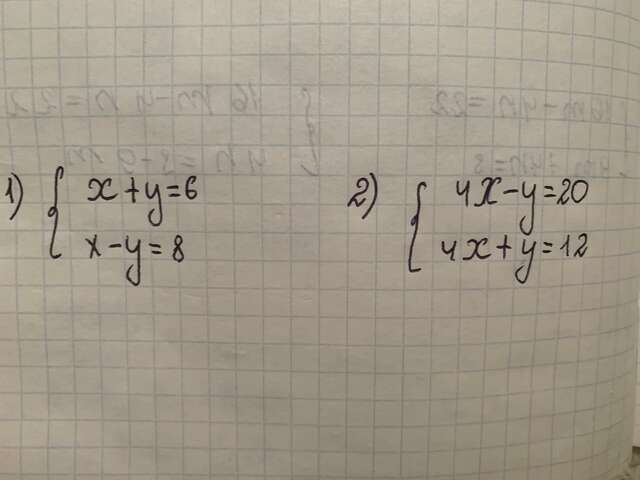 1) { x+y=6
x-y=8
2) { 4x-y=20
4x+y=12